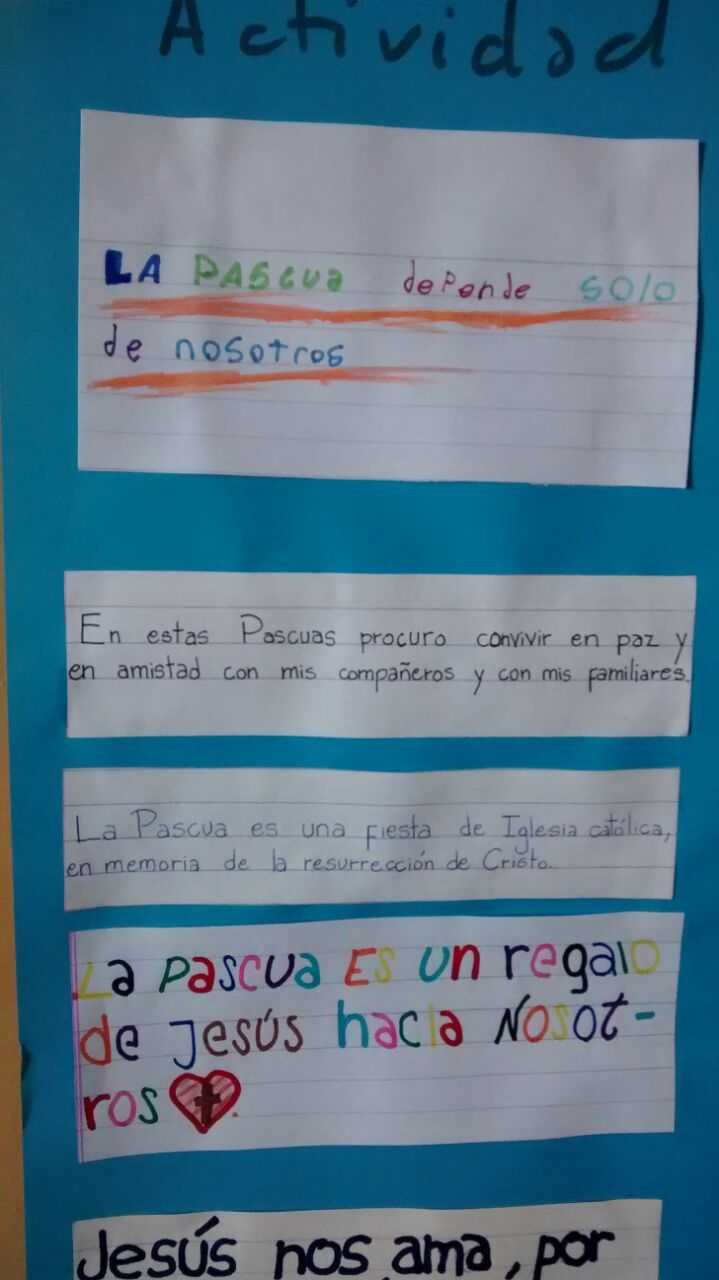 Actividad
LA PASCUA depende solo
de nosotros
En estas Pascuas procuro convivir en paz y
en amistad con mis compañeros y con mis familiares.
La Pascua es una fiesta de Iglesia católica,
en memoria de la resurrección de Cristo.
La Pascua ES un regalo
de Jesús hacia Nosot-
ros
Jesús nos ama, por